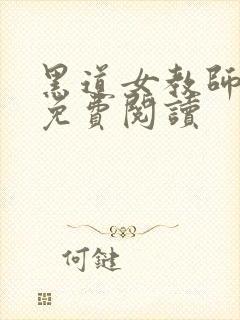 黑道女教師
免費閱讀
何鍵